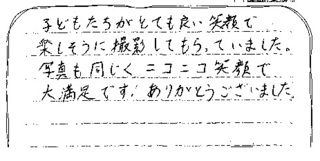 子どもたちがとても良い笑顔で
楽しそうに撮影してもらっていました。
写真も同じくニコニコ笑顔で
大満足です！ありがとうございました